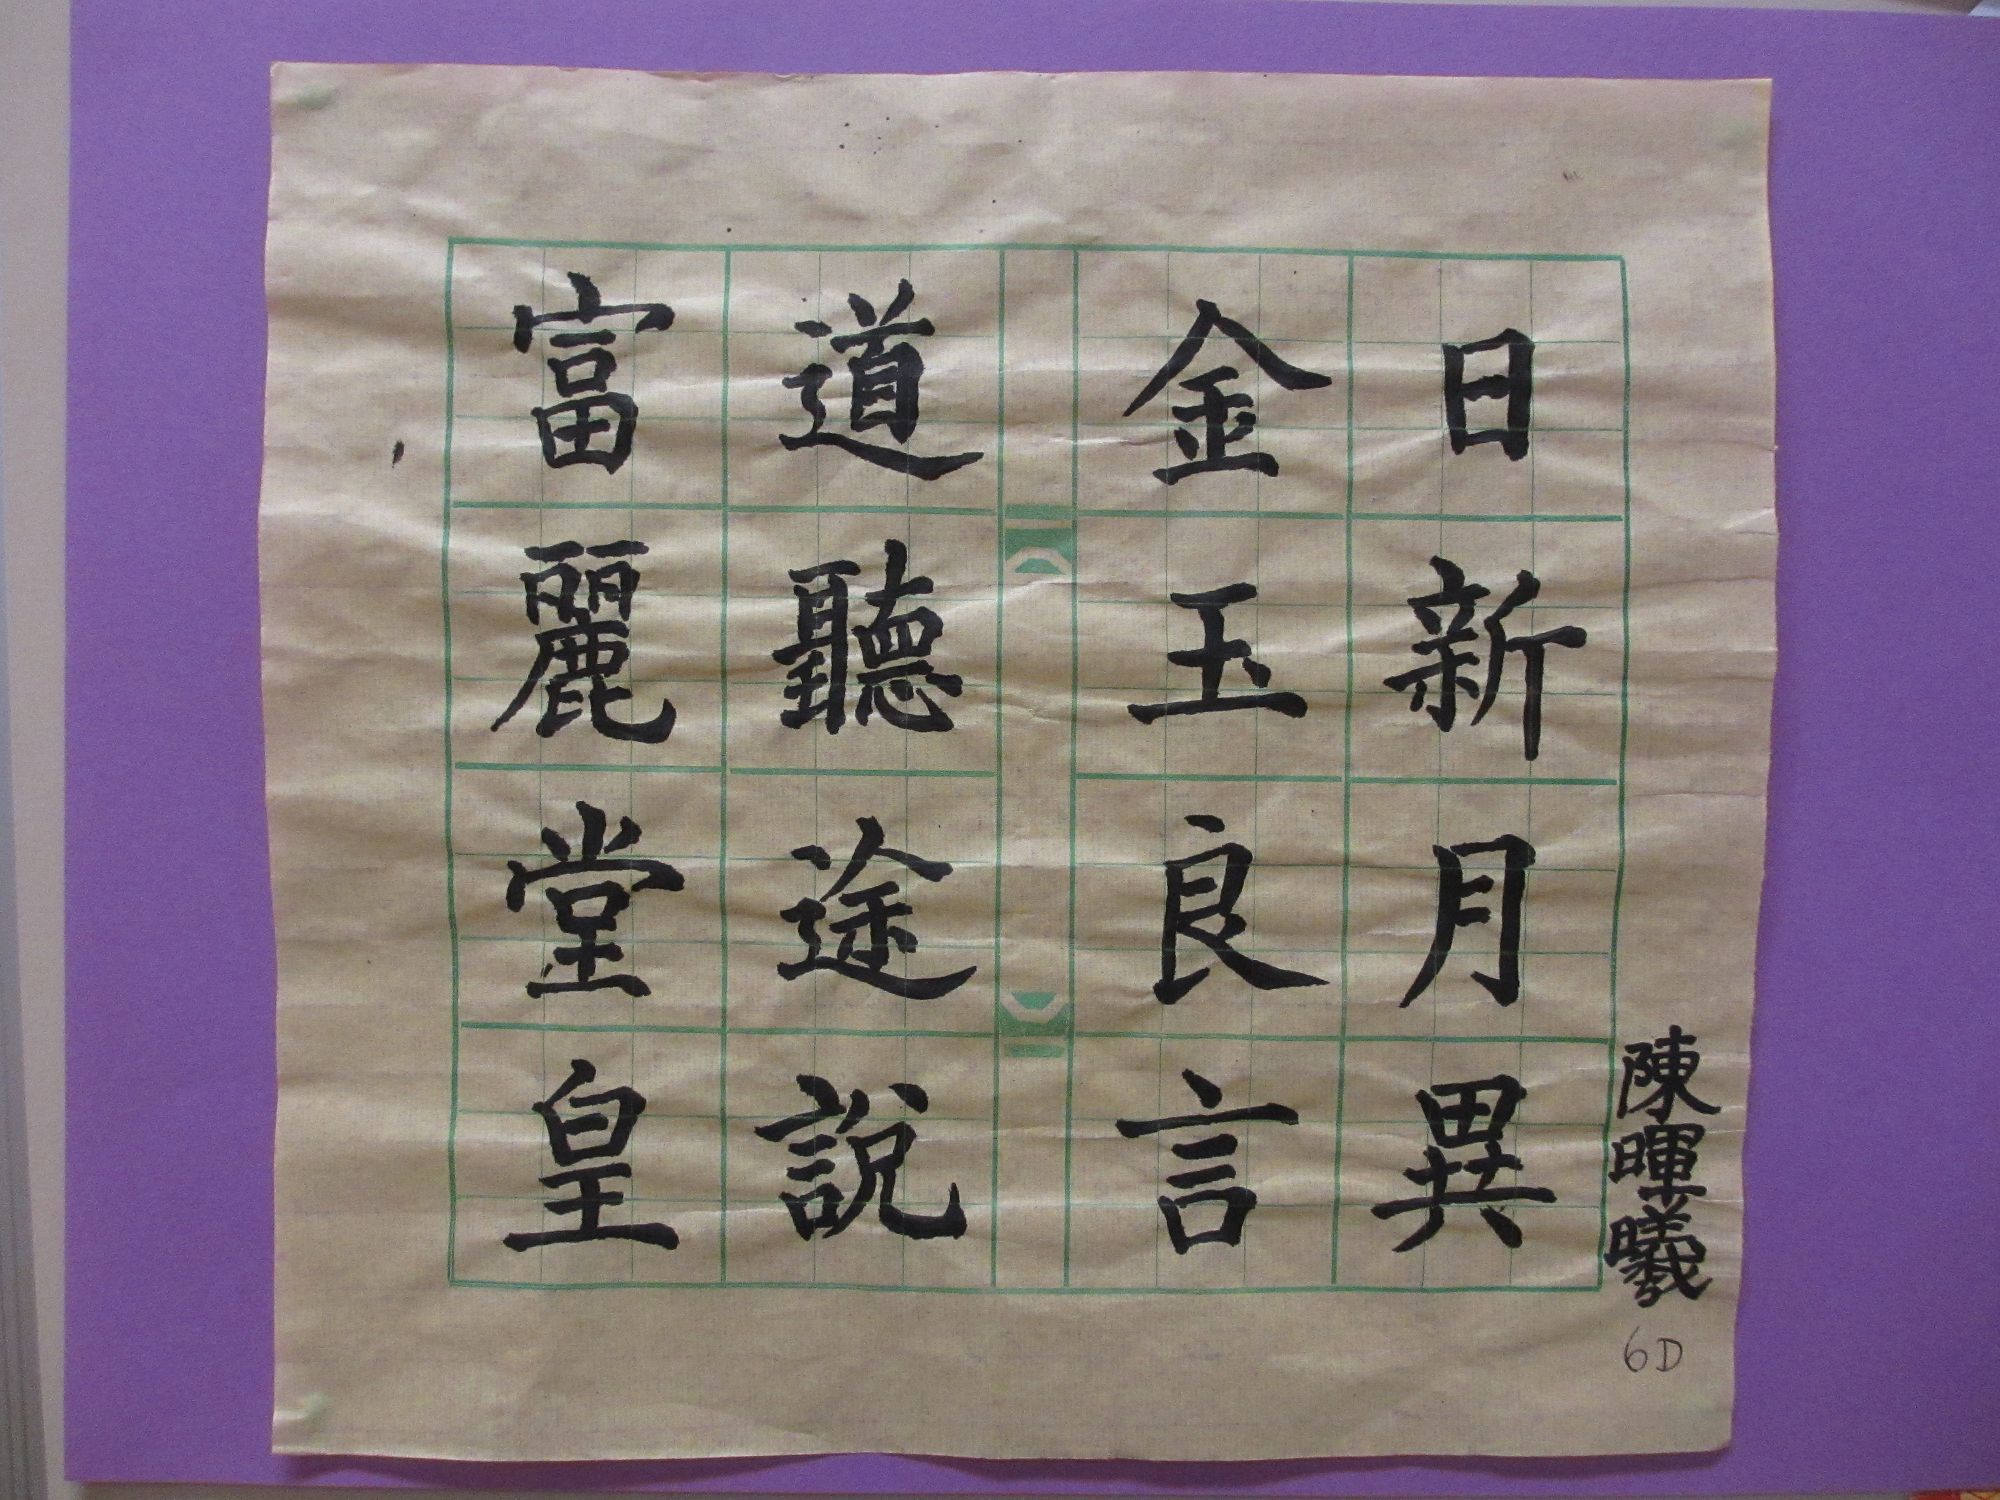 日新月異
金玉良言
道聽途說
富麗堂皇
陳暉曦
6D